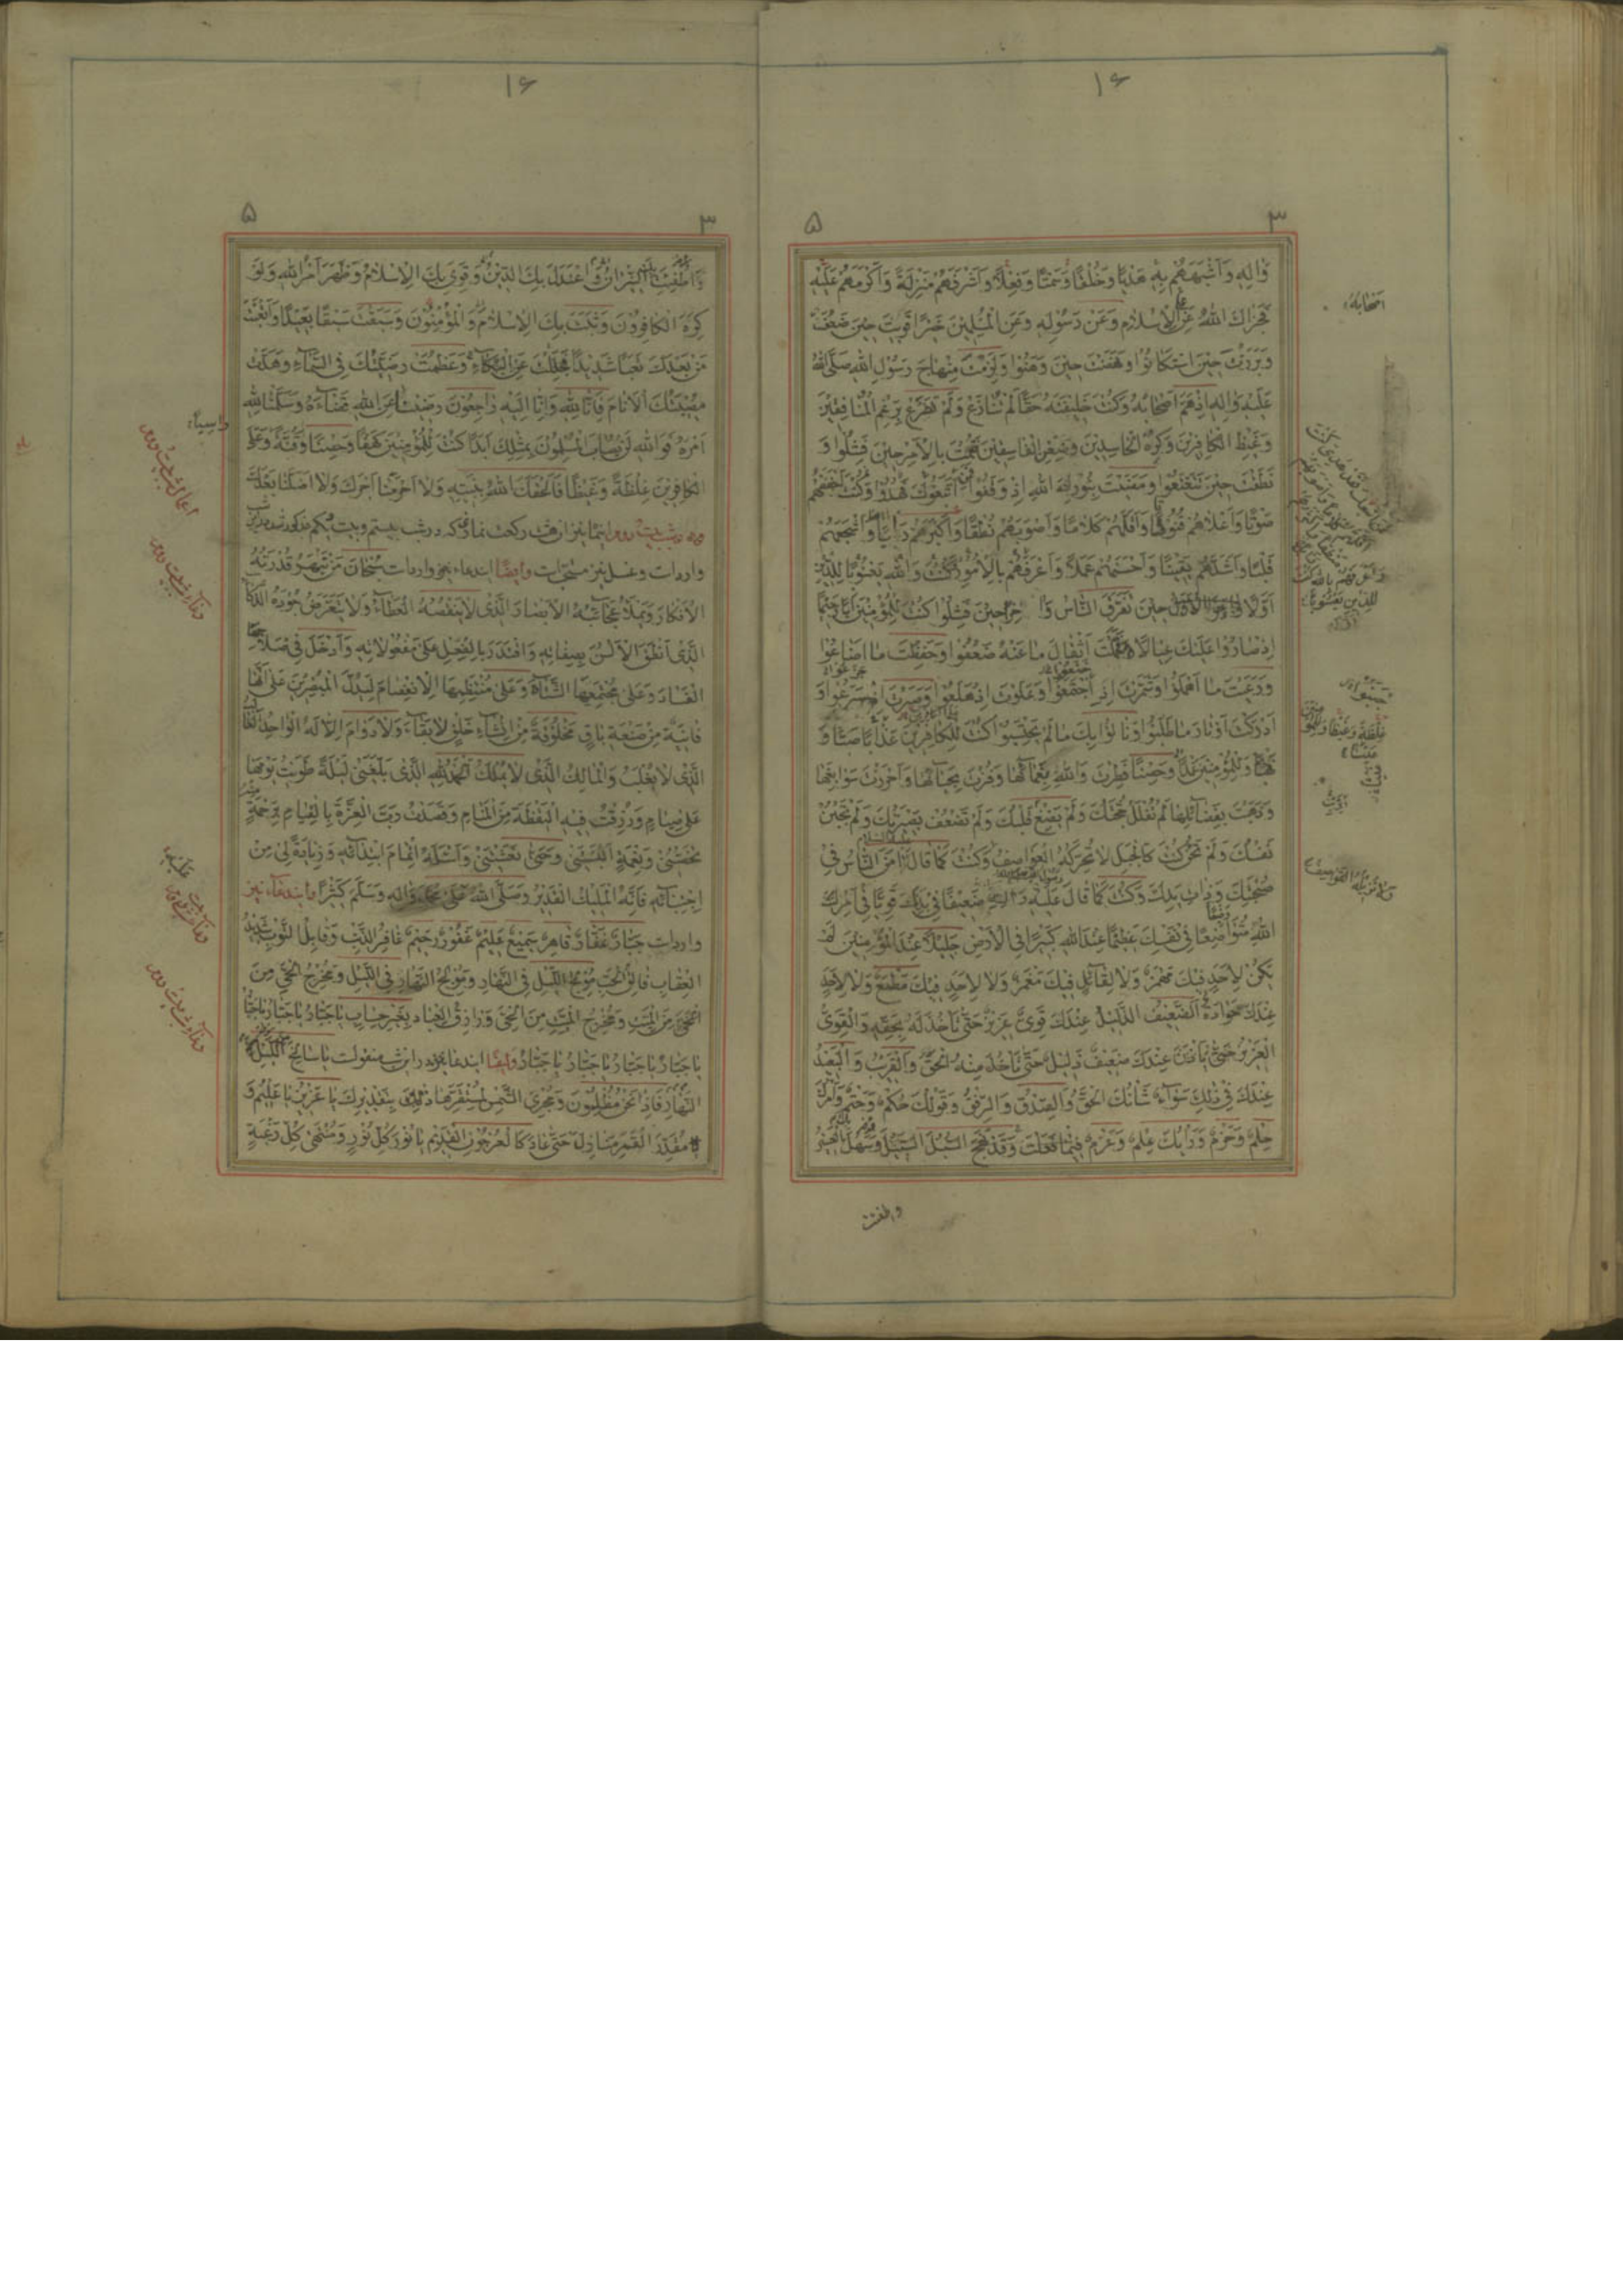 ۱۶
۳ ۵
وَالِهِ وَاَشْبَهَهُمْ بِهِ هَدْيًا وَخُلْقًا وَسَمْتًا وَفِعْلًا وَاَشْرَفَهُمْ مَنْزِلَةً وَاَكْرَمَهُمْ عَلَيْهِ
فَجَزَاكَ اللهُ عَنِ الْاِسْلَامِ وَعَنْ رَسُولِهِ وَعَنِ الْمُسْلِمِينَ خَيْرًا قَوِيتَ حِينَ ضَعُفَ
وَبَرَزْتَ حِينَ اسْتَكَانُوا وَنَهَضْتَ حِينَ وَهَنُوا وَلَزِمْتَ مِنْهَاجَ رَسُولِ اللهِ صَلَّى اللهُ
عَلَيْهِ وَالِهِ اِذْ هَمَّ اَصْحَابُهُ وَكُنْتَ خَلِيفَتَهُ حَقًّا لَمْ تُنَازَعْ وَلَمْ تَضْرَعْ بِرَغْمِ الْمُنَافِقِينَ
وَغَيْظِ الْكَافِرِينَ وَكُرْهِ الْحَاسِدِينَ وَضِغْنِ الْفَاسِقِينَ فَقُمْتَ بِالْاَمْرِ حِينَ فَشِلُوا وَ
نَطَقْتَ حِينَ تَتَعْتَعُوا وَمَضَيْتَ بِنُورِ اللهِ اِذْ وَقَفُوا اتَّبَعُوكَ فَهُدُوا وَكُنْتَ اَخْفَضَهُمْ
صَوْتًا وَاَعْلَاهُمْ قُنُوتًا وَاَقَلَّهُمْ كَلَامًا وَاَصْوَبَهُمْ نُطْقًا وَاَكْبَرَهُمْ رَأْيًا وَاَشْجَعَهُمْ
قَلْبًا وَاَشَدَّهُمْ يَقِينًا وَاَحْسَنَهُمْ عَمَلًا وَاَعْرَفَهُمْ بِالْاُمُورِ كُنْتَ وَاللهِ يَعْسُوبًا لِلدِّينِ
اَوَّلًا حِينَ تَفَرَّقَ النَّاسُ وَاٰخِرًا حِينَ فَشِلُوا كُنْتَ لِلْمُؤْمِنِينَ اَبًا رَحِيمًا
اِذْ صَارُوا عَلَيْكَ عِيَالًا فَحَمَلْتَ اَثْقَالَ مَا عَنْهُ ضَعُفُوا وَحَفِظْتَ مَا اَضَاعُوا
وَرَعَيْتَ مَا اَهْمَلُوا وَشَمَّرْتَ اِذِ اجْتَمَعُوا وَعَلَوْتَ اِذْ هَلَعُوا وَصَبَرْتَ اِذْ اَسْرَعُوا وَ
اَدْرَكْتَ اَوْتَارَ مَا طَلَبُوا وَنَالُوا بِكَ مَا لَمْ يَحْتَسِبُوا كُنْتَ لِلْكَافِرِينَ عَذَابًا صَبًّا وَ
نَهْبًا وَلِلْمُؤْمِنِينَ عَمَدًا وَحِصْنًا فَطِرْتَ وَاللهِ بِنَعْمَائِهَا وَفُزْتَ بِحِبَائِهَا وَاَحْرَزْتَ سَوَابِقَهَا
وَذَهَبْتَ بِفَضَائِلِهَا لَمْ تُفْلَلْ حُجَّتُكَ وَلَمْ يَزِغْ قَلْبُكَ وَلَمْ تَضْعُفْ بَصِيرَتُكَ وَلَمْ تَجْبُنْ
نَفْسُكَ وَلَمْ تَخُنْ كُنْتَ كَالْجَبَلِ لَا تُحَرِّكُهُ الْعَوَاصِفُ وَكُنْتَ كَمَا قَالَ اَمِنَ النَّاسُ فِي
صُحْبَتِكَ وَذَاتِ يَدِكَ وَكُنْتَ كَمَا قَالَ عَلَيْهِ وَالِهِ ضَعِيفًا فِي بَدَنِكَ قَوِيًّا فِي اَمْرِ
اللهِ مُتَوَاضِعًا فِي نَفْسِكَ عَظِيمًا عِنْدَ اللهِ كَبِيرًا فِي الْاَرْضِ جَلِيلًا عِنْدَ الْمُؤْمِنِينَ لَمْ
يَكُنْ لِاَحَدٍ فِيكَ مَهْمَزٌ وَلَا لِقَائِلٍ فِيكَ مَغْمَزٌ وَلَا لِاَحَدٍ فِيكَ مَطْمَعٌ وَلَا لِاَحَدٍ
عِنْدَكَ هَوَادَةٌ الضَّعِيفُ الذَّلِيلُ عِنْدَكَ قَوِيٌّ عَزِيزٌ حَتَّى تَأْخُذَ لَهُ بِحَقِّهِ وَالْقَوِيُّ
الْعَزِيزُ عِنْدَكَ ضَعِيفٌ ذَلِيلٌ حَتَّى تَأْخُذَ مِنْهُ الْحَقَّ وَالْقَرِيبُ وَالْبَعِيدُ
عِنْدَكَ فِي ذٰلِكَ سَوَاءٌ شَأْنُكَ الْحَقُّ وَالصِّدْقُ وَالرِّفْقُ وَقَوْلُكَ حُكْمٌ وَحَتْمٌ وَاَمْرُكَ
حِلْمٌ وَحَزْمٌ وَرَأْيُكَ عِلْمٌ وَعَزْمٌ فِيمَا فَعَلْتَ وَقَدْ نَهَجَ السَّبِيلُ وَسَهُلَ الْعَسِيرُ
۱۶
۳ ۵
وَاُطْفِئَتِ النِّيرَانُ وَاعْتَدَلَ بِكَ الدِّينُ وَقَوِيَ بِكَ الْاِسْلَامُ وَظَهَرَ اَمْرُ اللهِ وَلَوْ
كَرِهَ الْكَافِرُونَ وَثَبَتَ بِكَ الْاِسْلَامُ وَالْمُؤْمِنُونَ وَسَبَقْتَ سَبْقًا بَعِيدًا وَاَتْعَبْتَ
مَنْ بَعْدَكَ تَعَبًا شَدِيدًا فَجَلَلْتَ عَنِ الْبُكَاءِ وَعَظُمَتْ رَزِيَّتُكَ فِي السَّمَاءِ وَهَدَّتْ
مُصِيبَتُكَ الْاَنَامَ فَاِنَّا لِلهِ وَاِنَّا اِلَيْهِ رَاجِعُونَ رَضِينَا عَنِ اللهِ قَضَاءَهُ وَسَلَّمْنَا لِلهِ
اَمْرَهُ فَوَاللهِ لَنْ يُصَابَ الْمُسْلِمُونَ بِمِثْلِكَ اَبَدًا كُنْتَ لِلْمُؤْمِنِينَ كَهْفًا وَحِصْنًا وَقُنَّةً وَعَلَى
الْكَافِرِينَ غِلْظَةً وَغَيْظًا فَاَلْحَقَكَ اللهُ بِنَبِيِّهِ وَلَا اَحْرَمَنَا اَجْرَكَ وَلَا اَضَلَّنَا بَعْدَكَ
هشت ركعت نماز كه در شب بيستم وبيست ويكم مذكور شد
واردات وغسل نيز مستحبّ است وايضًا ايندعاء نيز واردات سُبْحَانَ مَنْ تَبْهَرُ قُدْرَتُهُ
الْاَفْكَارَ وَتَمْلَأُ عَجَائِبُهُ الْاَبْصَارَ الَّذِي لَا يَنْقُصُهُ الْعَطَاءُ وَلَا يَتَعَرَّضُ جُودُهُ
الَّذِي اَنْطَقَ الْاَلْسُنَ بِصِفَاتِهِ وَاقْتَدَرَ بِالْفِعْلِ عَلَى مَفْعُولَاتِهِ وَاَدْخَلَ فِي صَلَاحِهَا
الْفَسَادَ وَعَلَى مُجْتَمِعِهَا الشَّتَاتَ وَعَلَى مُنْتَظِمِهَا الْاِنْفِصَامَ لِيَدُلَّ الْمُبْصِرِينَ عَلَى اَنَّهَا
فَانِيَةٌ مِنْ صَنْعَةِ بَاقٍ مَخْلُوقَةٌ مِنْ اِنْشَاءِ خَالِقٍ لَا بَقَاءَ وَلَا دَوَامَ اِلَّا لَهُ الْوَاحِدُ
الَّذِي لَا يُغْلَبُ وَالْمَالِكُ الَّذِي لَا يُمْلَكُ اَلْحَمْدُ لِلهِ الَّذِي بَلَّغَنِي لَيْلَةً طَوَيْتُ يَوْمَهَا
عَلَى صِيَامٍ وَرُزِقْتُ فِيهِ الْيَقَظَةَ مِنَ الْمَنَامِ وَقَصَدْتُ رَبَّ الْعِزَّةِ بِالْقِيَامِ بِرَحْمَةٍ
تَخُصُّنِي وَنِعْمَةٍ اَلْبَسَتْنِي وَحُسْنَى تَغَشَّتْنِي وَاَسْأَلُهُ اِتْمَامَ ابْتِدَائِهِ وَزِيَادَةً لِي مِنْ
اجْتِبَائِهِ فَاِنَّهُ الْمَلِيكُ الْقَدِيرُ وَصَلَّى اللهُ عَلَى مُحَمَّدٍ وَالِهِ وَسَلَّمَ كَثِيرًا وايندعاء نيز
واردات جَبَّارٌ غَفَّارٌ قَاهِرٌ سَمِيعٌ عَلِيمٌ غَفُورٌ رَحِيمٌ غَافِرُ الذَّنْبِ وَقَابِلُ التَّوْبِ شَدِيدُ
الْعِقَابِ فَالِقُ الْحَبِّ مُولِجُ اللَّيْلِ فِي النَّهَارِ وَمُولِجُ النَّهَارِ فِي اللَّيْلِ وَمُخْرِجُ الْحَيِّ مِنَ
الْمَيِّتِ وَمُخْرِجُ الْمَيِّتِ مِنَ الْحَيِّ وَرَازِقُ الْعِبَادِ بِغَيْرِ حِسَابٍ يَا جَبَّارُ يَا جَبَّارُ
يَا جَبَّارُ يَا جَبَّارُ يَا جَبَّارُ يَا جَبَّارُ وايضًا ايندعا منقولست يَا سَالِخَ اللَّيْلِ
النَّهَارِ فَاِذَا نَحْنُ مُظْلِمُونَ وَمُجْرِيَ الشَّمْسِ لِمُسْتَقَرِّهَا بِتَقْدِيرِكَ يَا عَزِيزُ يَا عَلِيمُ وَ
مُقَدِّرَ الْقَمَرِ مَنَازِلَ حَتَّى عَادَ كَالْعُرْجُونِ الْقَدِيمِ يَا نُورَ كُلِّ نُورٍ وَمُنْتَهَى كُلِّ رَغْبَةٍ